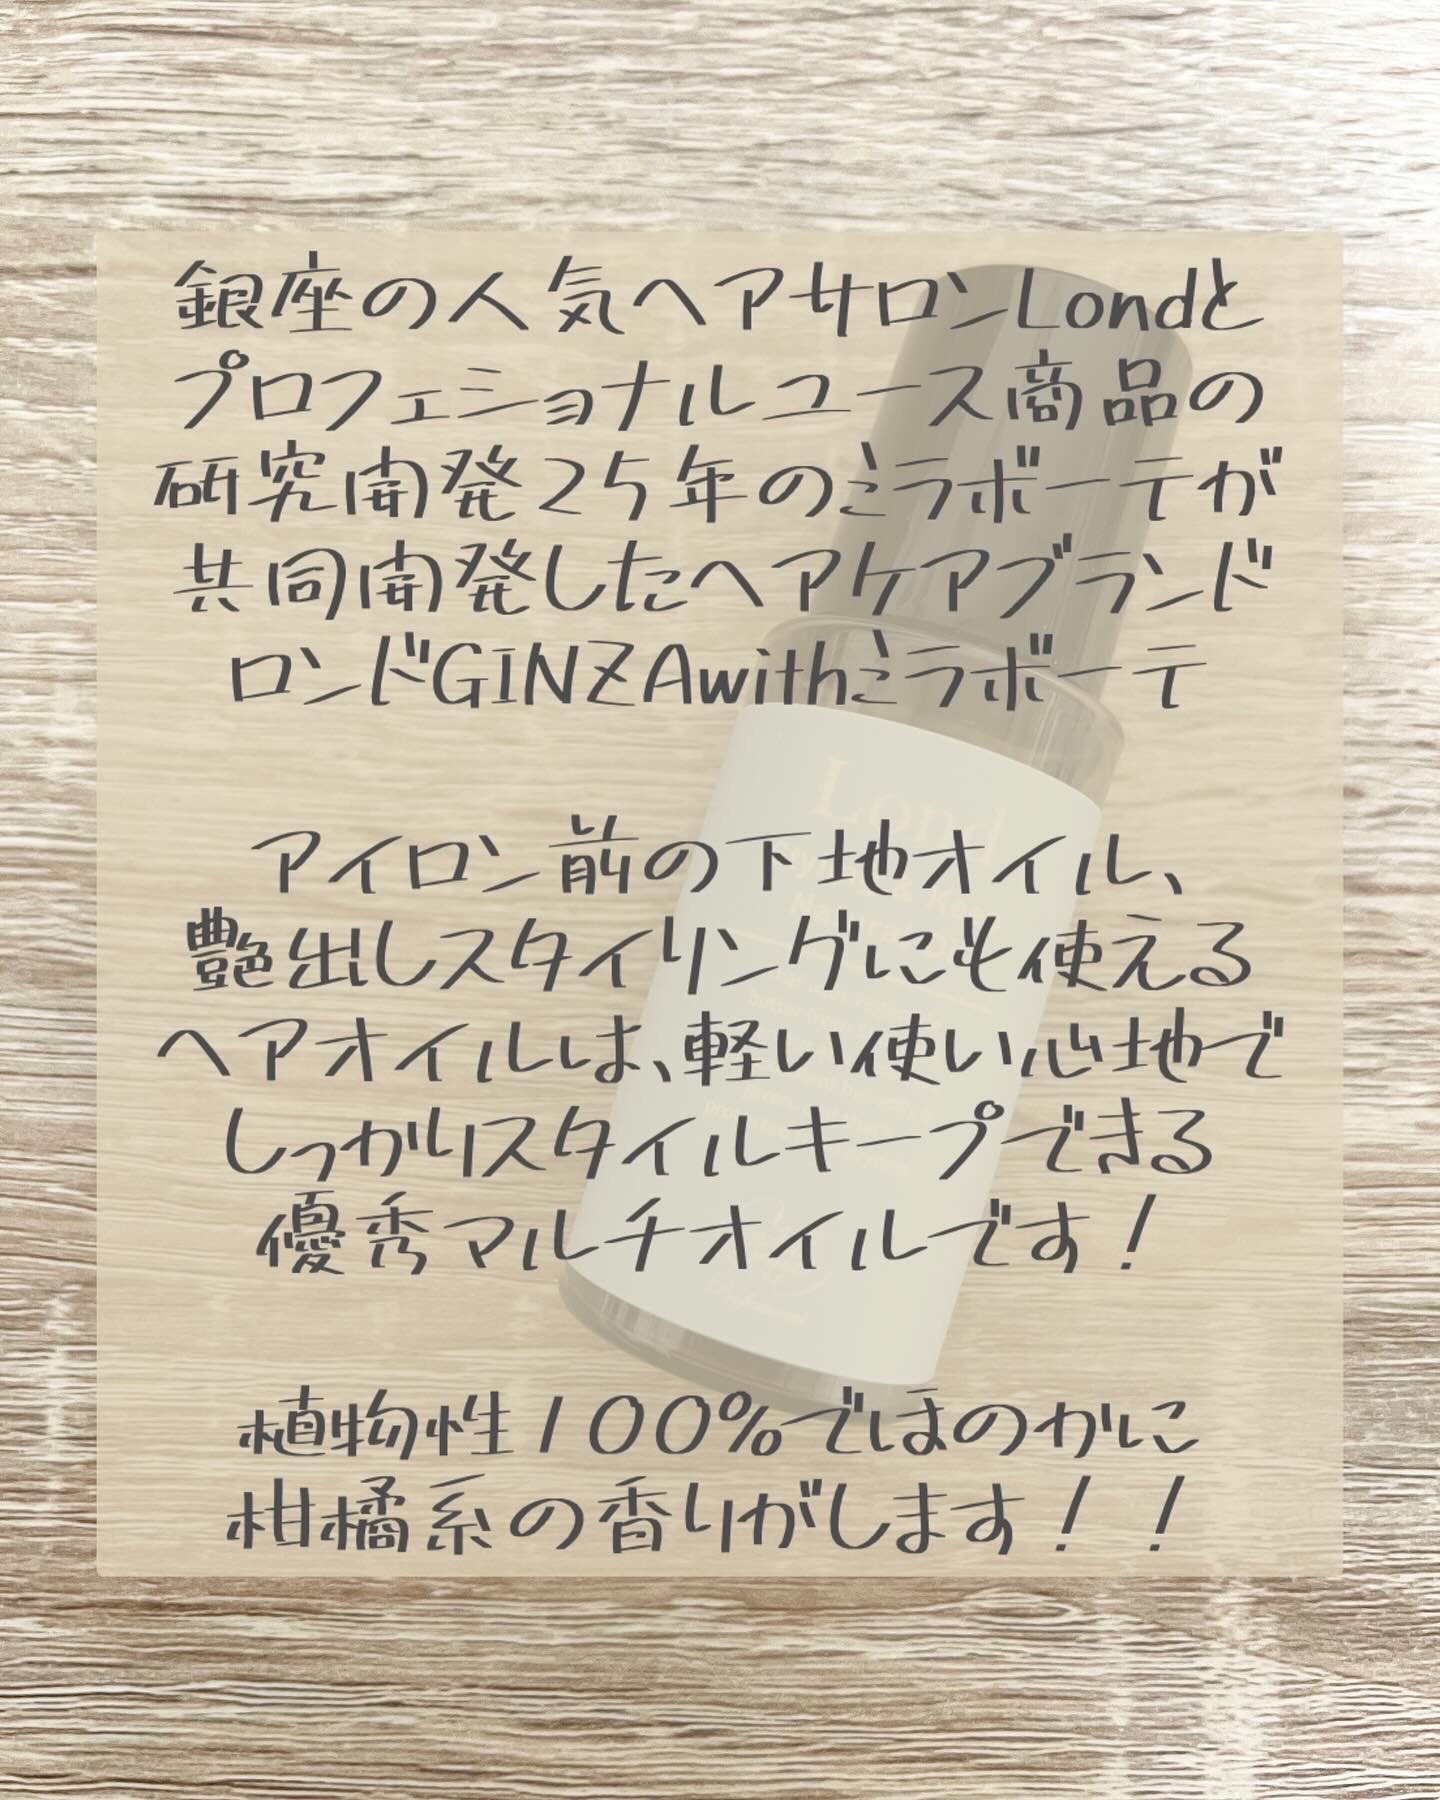 銀座の人気ヘアサロンLondと
プロフェショナルユース商品の
研究開発25年のミラボーテが
共同開発したヘアケアブランド
ロンドGINZAwithミラボーテ
アイロン前の下地オイル、
艶出しスタイリングにも使える
ヘアオイルは、軽い使い心地で
しっかりスタイルキープできる
優秀マルチオイルです！
植物性100%でほのかに
柑橘系の香りがします！！
Lond